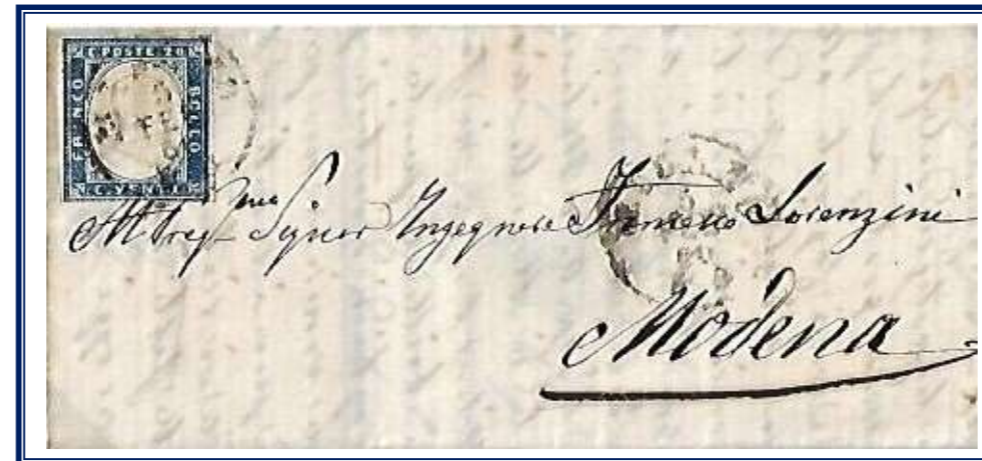 C. POSTE 20
FRANCO
BOLLO
C. VENTI
Al Preg.mo Signor Ingegnere Lorenzini
Modena